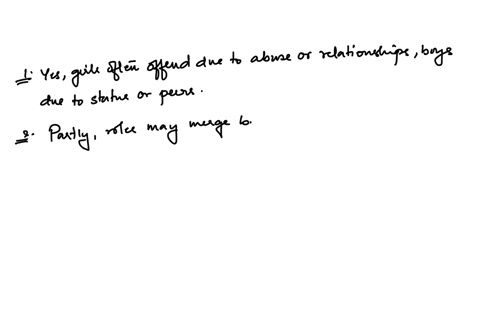 1. Yes, girls often offend due to abuse or relationships, boys
due to status or peers.
2. Partly, roles may merge b